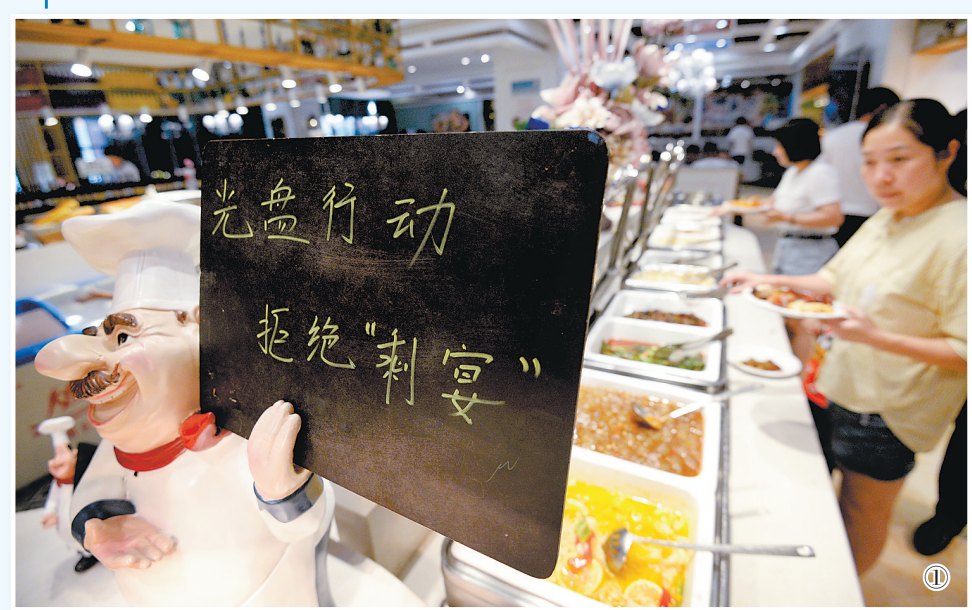 光盘行动
拒绝"剩宴"
①